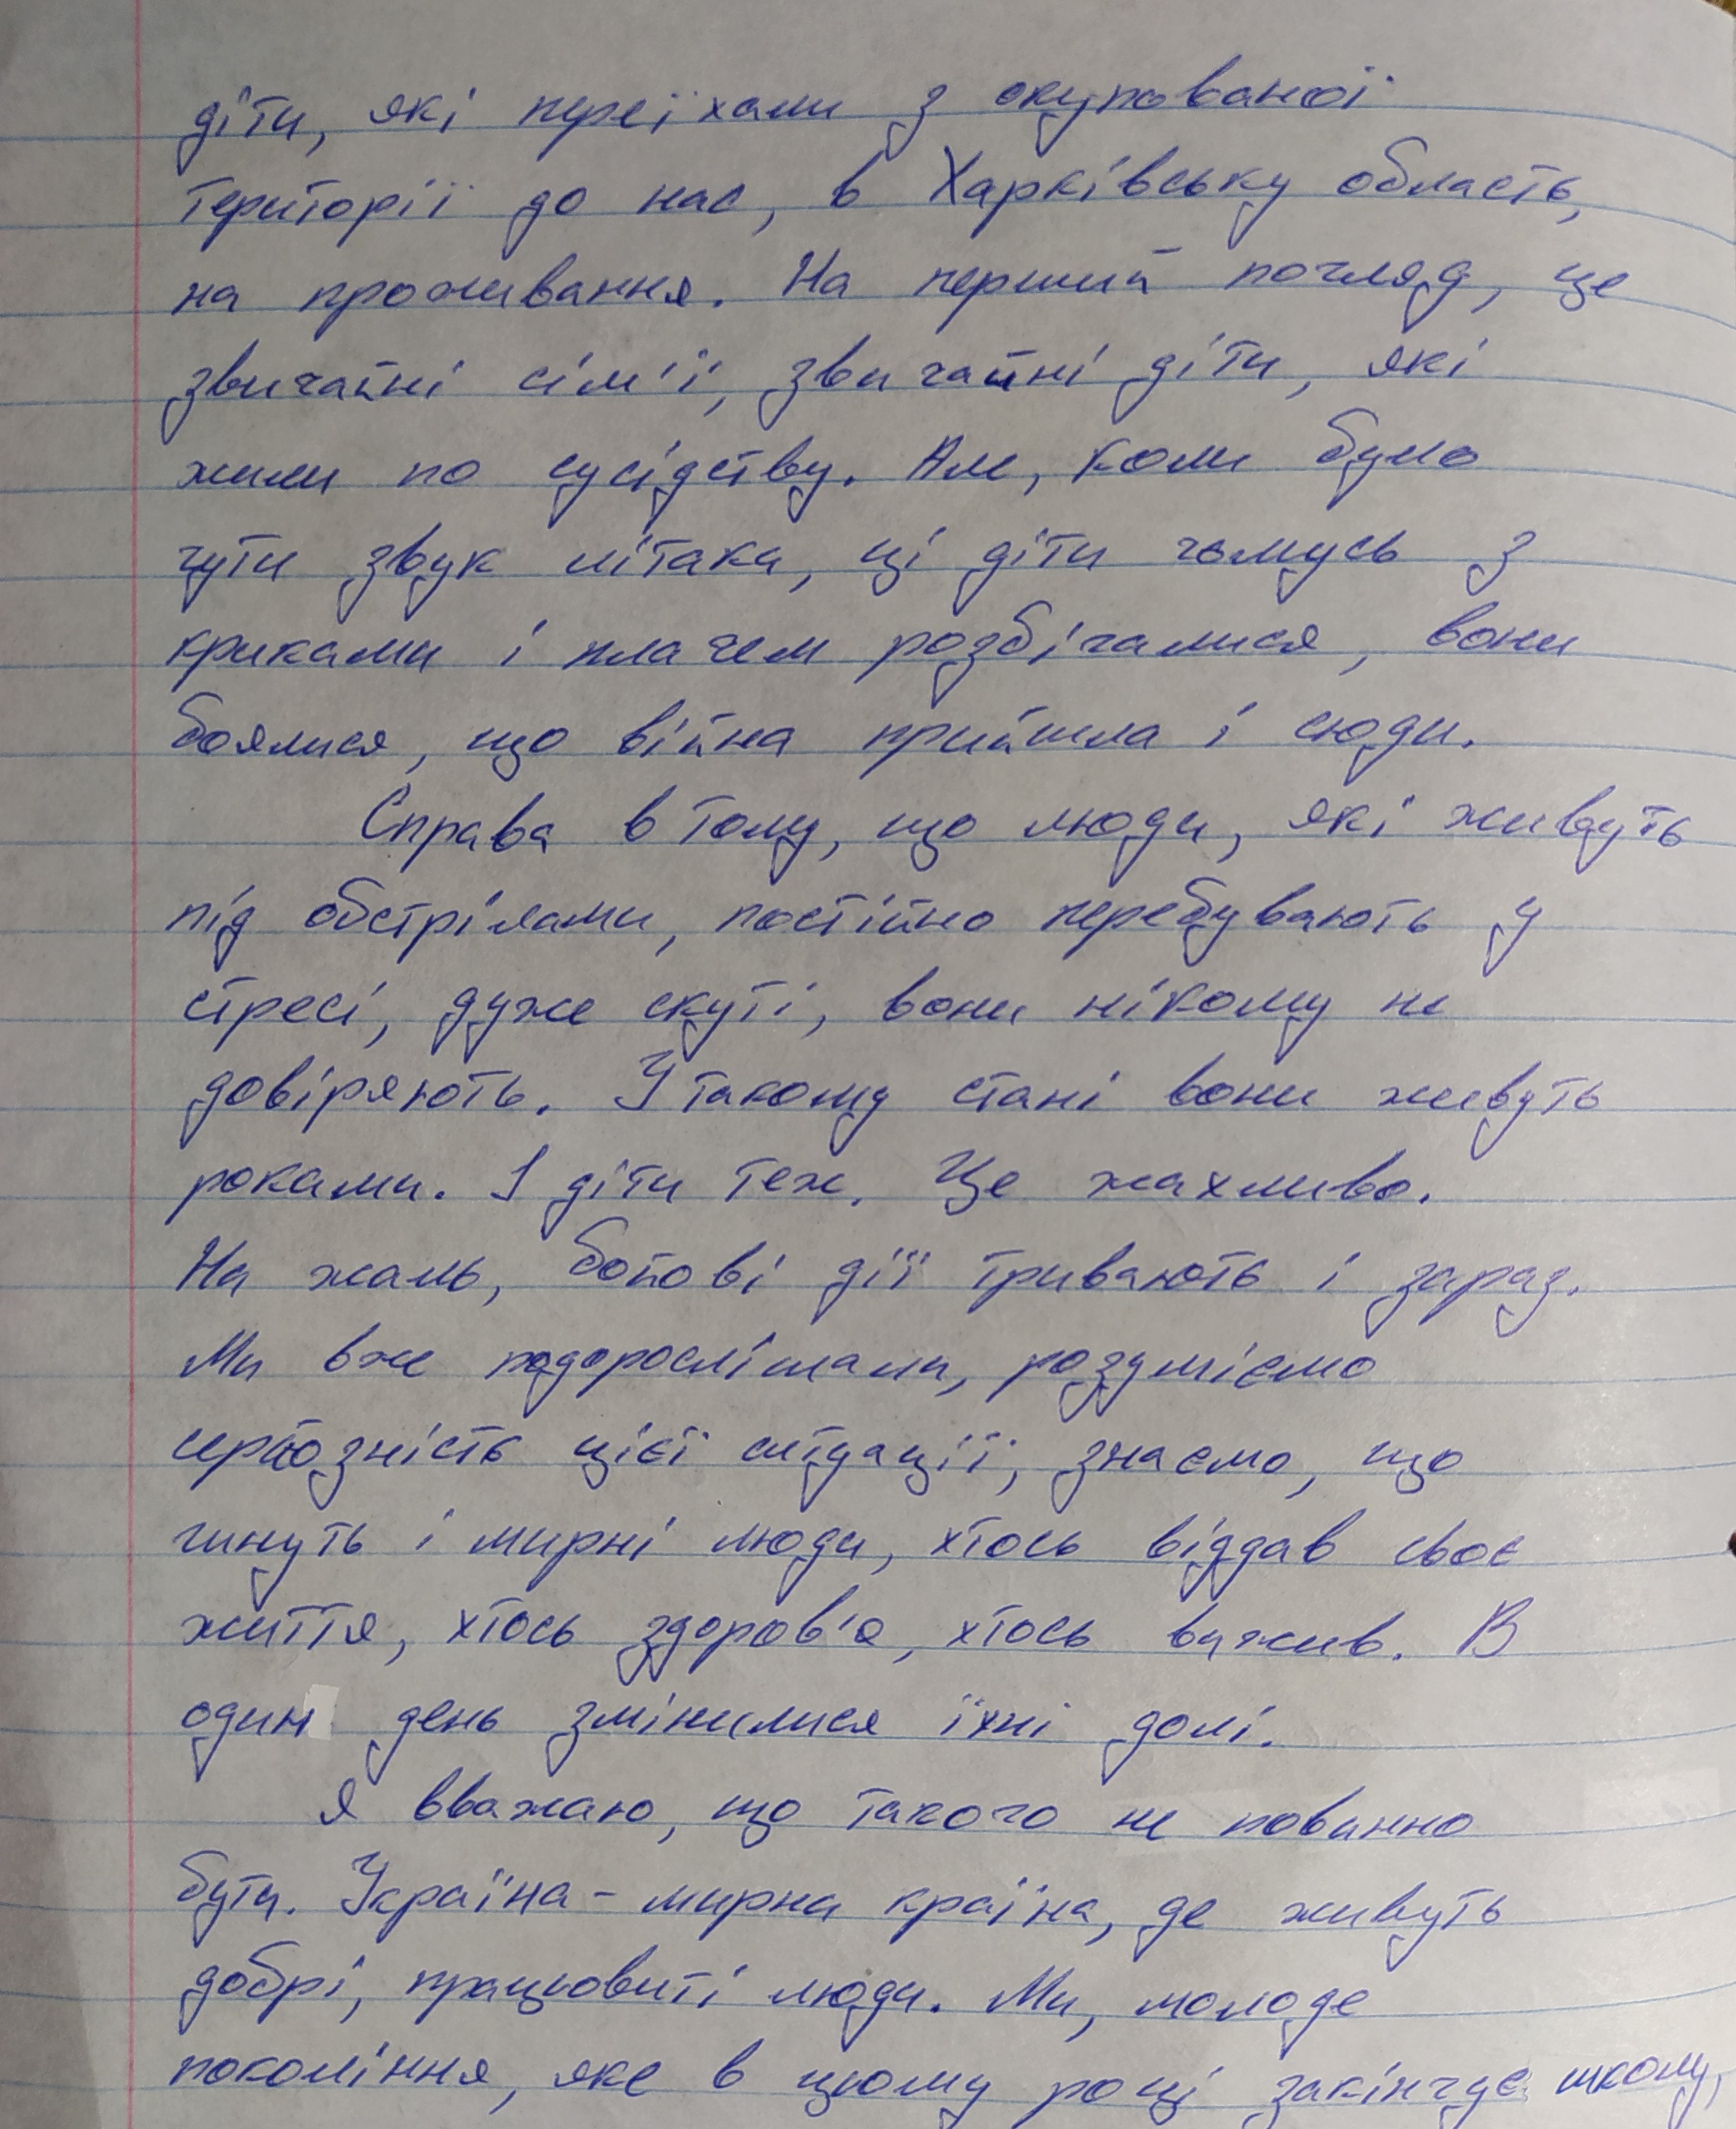 діти, які переїхали з окупованої
території до нас, в Харківську область,
на проживання. На перший погляд, це
звичайні сім'ї, звичайні діти, які
жили по сусідству. Але, коли було
чути звук літака, ці діти чомусь з
криками і плачем розбігалися, вони
боялися, що війна прийшла і сюди.
Справа в тому, що люди, які живуть
під обстрілами, постійно перебувають у
стресі, дуже скуті, вони нікому не
довіряють. У такому стані вони живуть
роками. І діти теж. Це жахливо.
На жаль, бойові дії тривають і зараз.
Ми вже подорослішали, розуміємо
серйозність цієї ситуації, знаємо, що
гинуть і мирні люди, хтось віддав своє
життя, хтось здоров'я, хтось вижив. В
один день змінилися їхні долі.
Я вважаю, що такого не повинно
бути. Україна - мирна країна, де живуть
добрі, працьовиті люди. Ми, молоде
покоління, яке в цьому році закінчує школу,